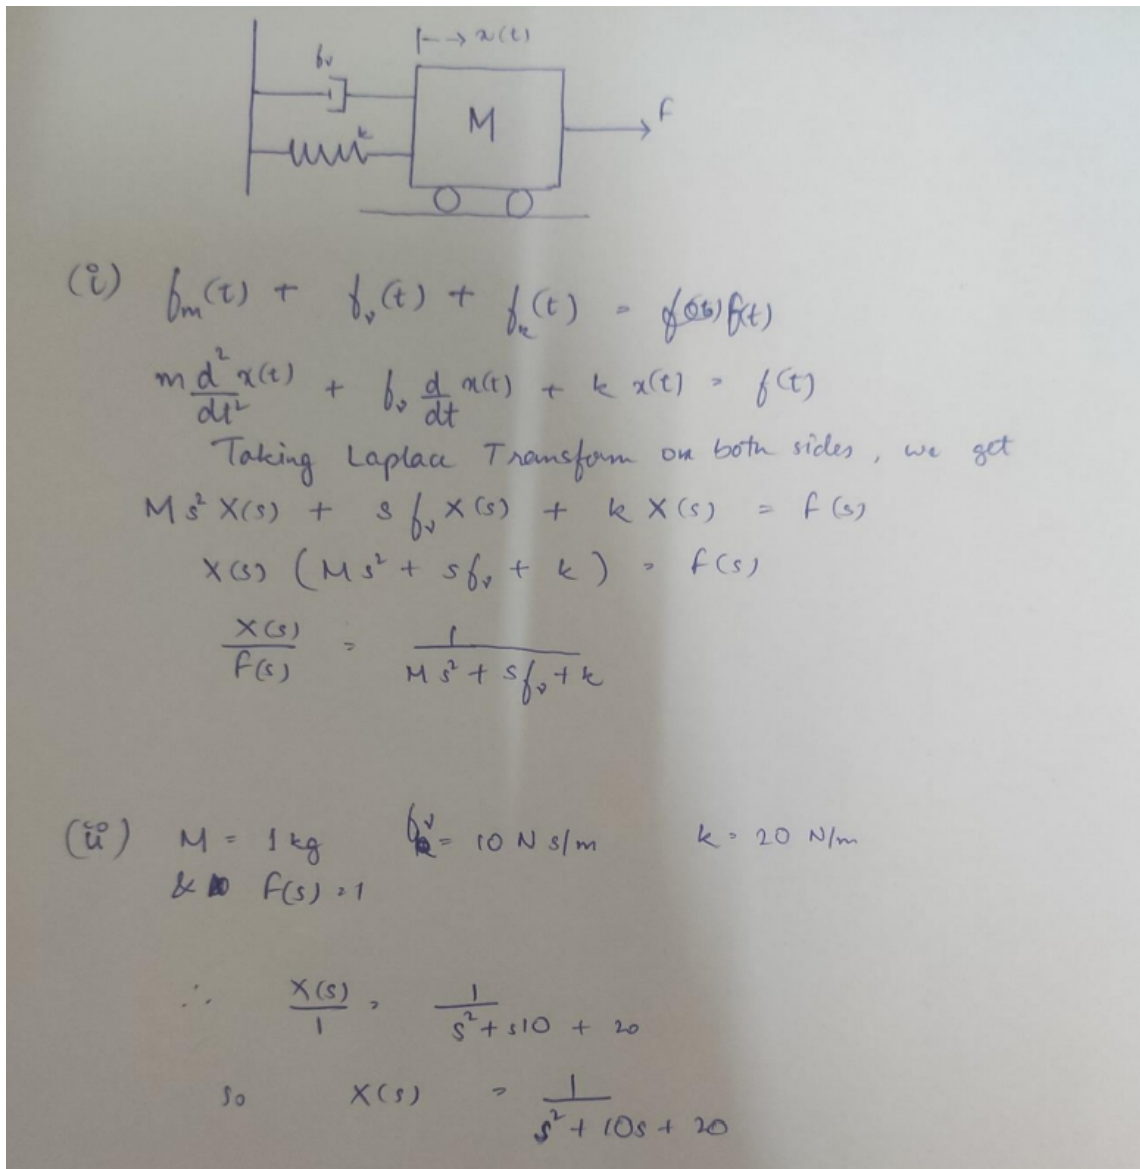 x(t)
fv
M
F
k
(i) fm(t) + fv(t) + fk(t) = f(t)
m d²x(t)/dt² + fv d/dt x(t) + k x(t) = f(t)
Taking Laplace Transform on both sides, we get
M s² X(s) + s fv X(s) + k X(s) = F(s)
X(s) (M s² + s fv + k) = F(s)
X(s)/F(s) = 1/(M s² + s fv + k)
(ii) M = 1 kg fv = 10 N s/m k = 20 N/m
& F(s) = 1
∴ X(s)/1 = 1/(s² + s10 + 20)
so X(s) = 1/(s² + 10s + 20)